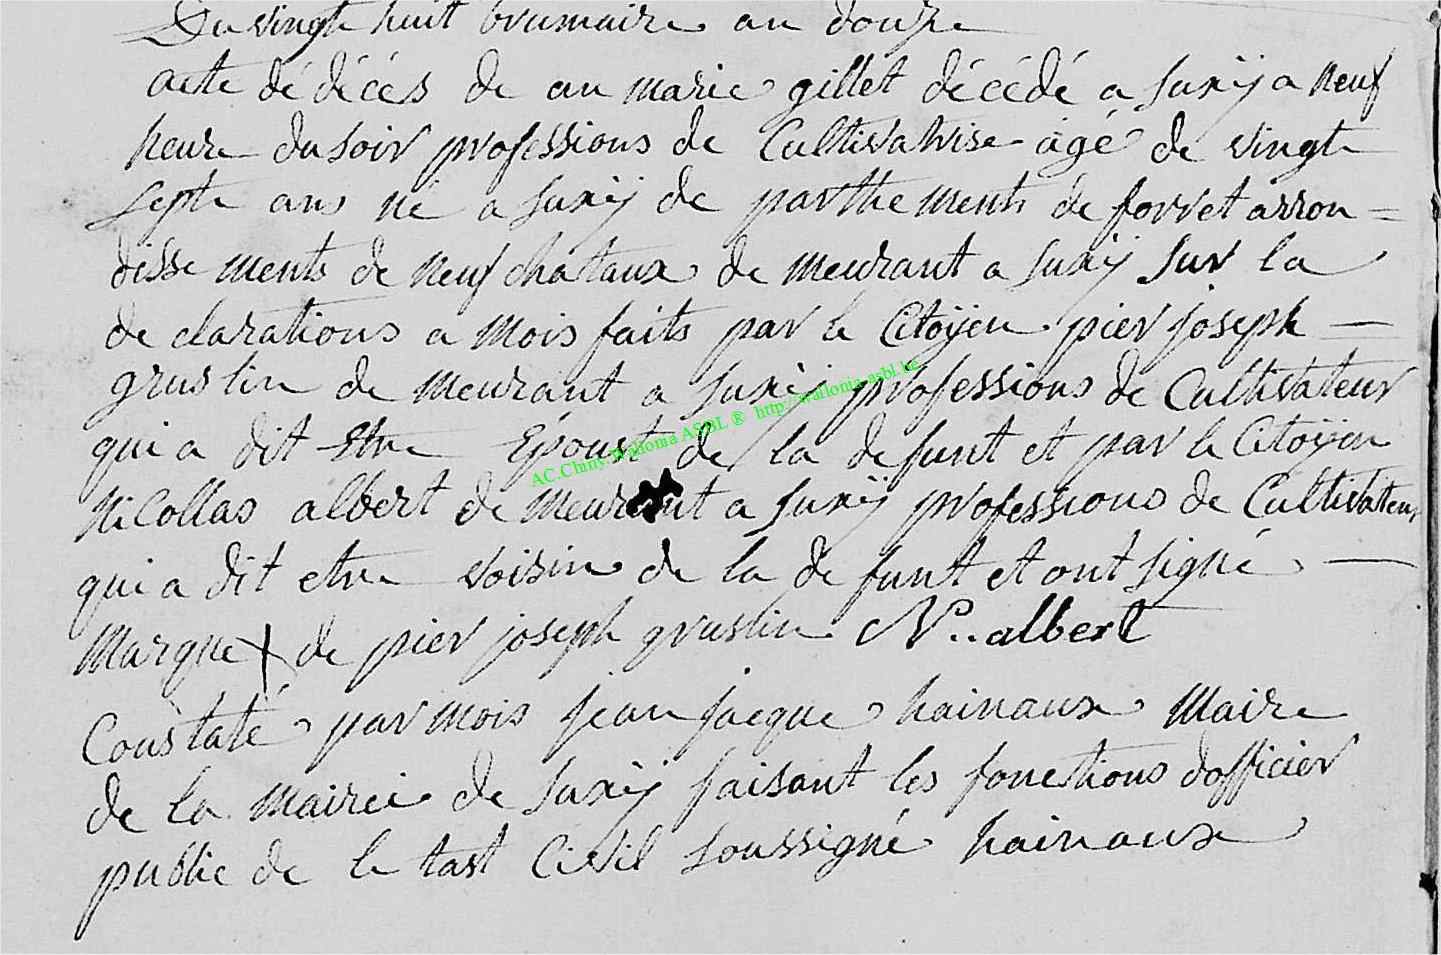 Du vingt huit brumaire an douze
acte dé décés de an marie gillet décédé a suxÿ a neuf
heure du soir professions de Cultivatrise agé de vingt
septe ans né a suxÿ de parthements de forret arron =
disse ments de neuf chataux de meurant a suxÿ sur la
de clarations a mois faits par le Citoÿen pier joseph —
gruslin de meurant a suxÿ professions de Cultivateur
qui a dit etre Epoust de la defunt et par le Citoÿen
nicollas albert de meurant a suxÿ professions de Cultivateur
qui a dit etre voisin de la de funt et ont signé —
marque X de pier joseph gruslin N.. albert
Constaté par mois jean jacque hainaux maire
de la mairie de suxÿ faisant les fonctions dofficier
public de le tast Civil soussigné hainaux
AC.Chiny.Wallonia ASBL ® http://wallonia-asbl.be